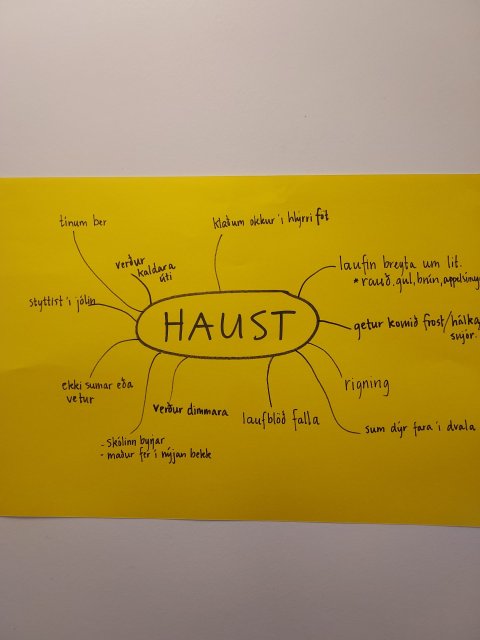 tínum ber
klæðum okkur í hlýrri föt
verður
kaldara
úti
laufin breyta um lit.
* rauð, gul, brún, appelsínug
styttist í jólin
HAUST
getur komið frost/hálka
snjór.
ekki sumar eða
vetur
rigning
verður dimmara
laufblöð falla
sum dýr fara í dvala
- Skólinn byrjar
- maður fer í nýjan bekk